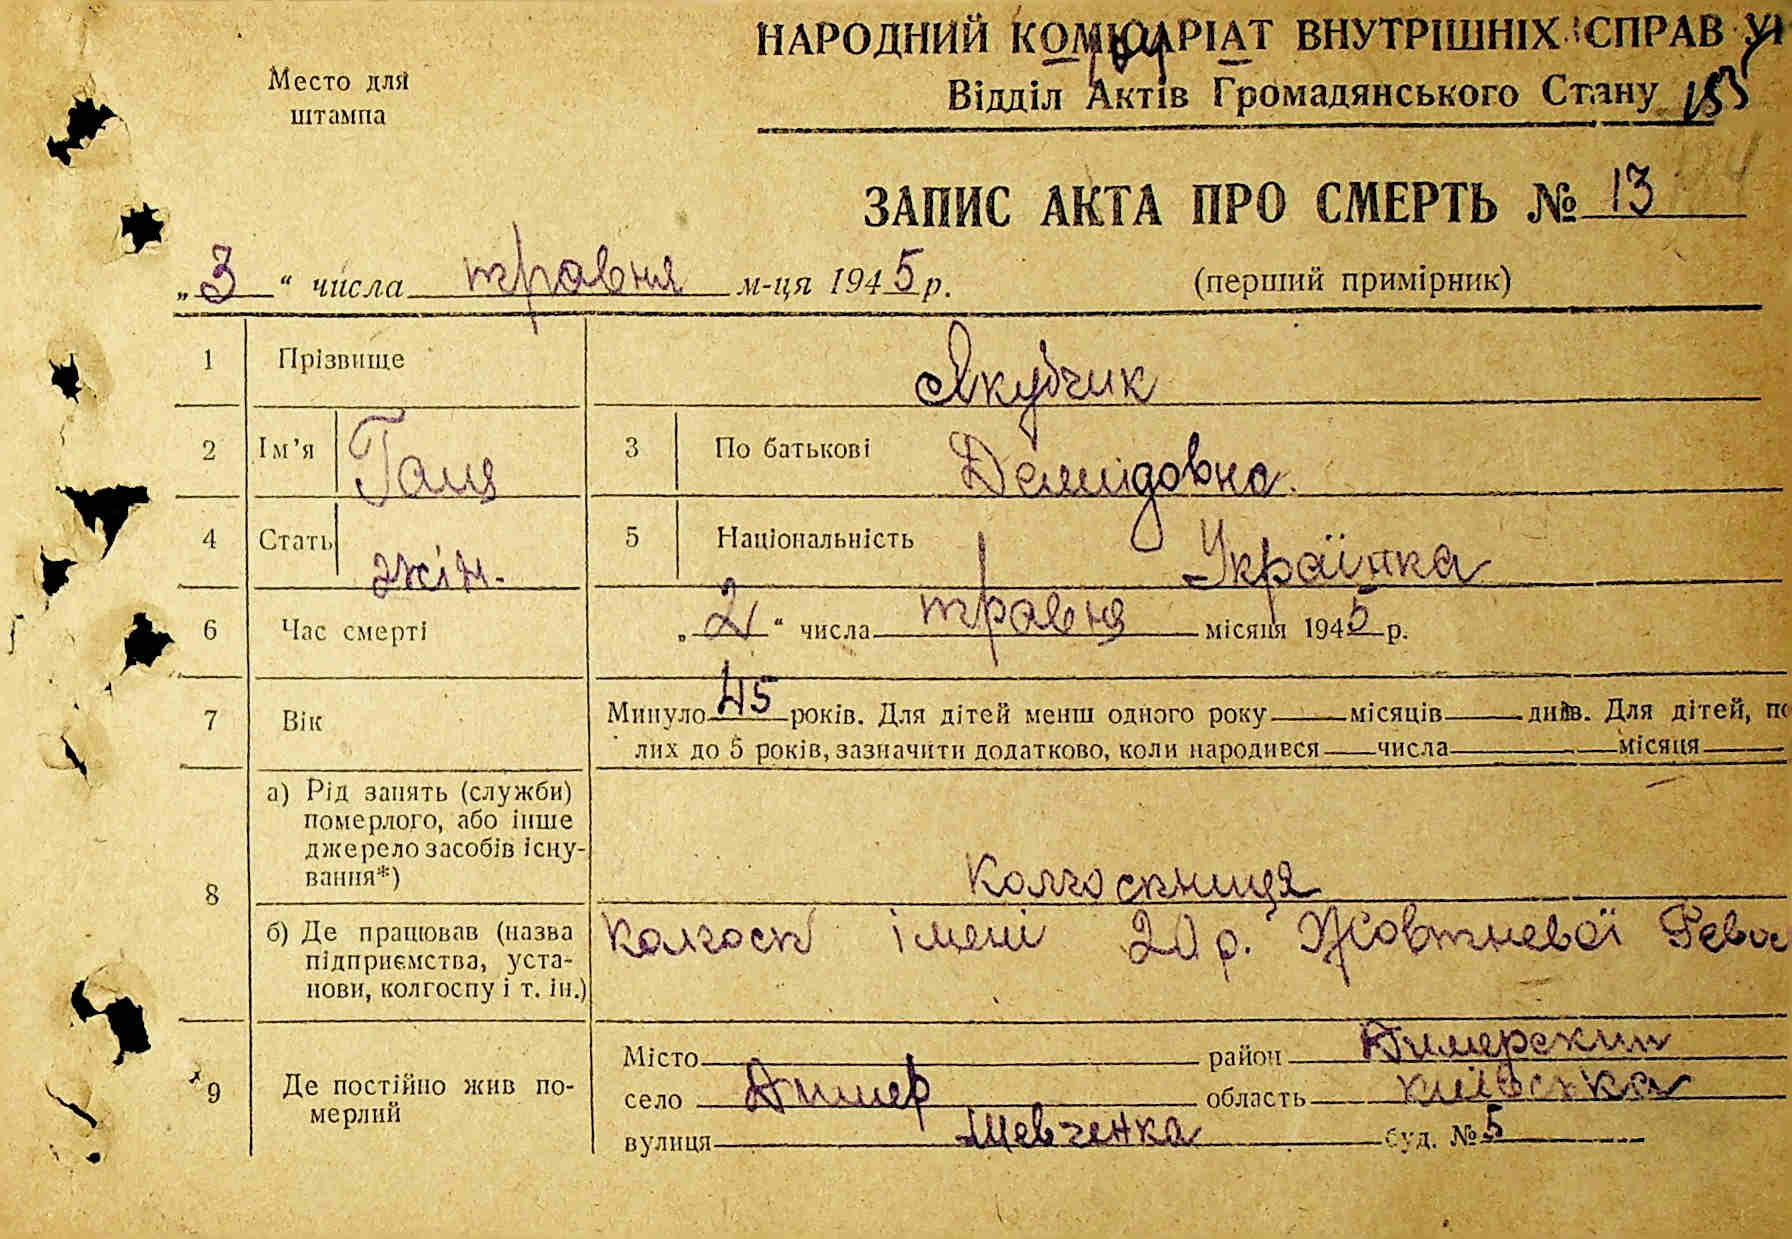 НАРОДНИЙ КОМІСАРІАТ ВНУТРІШНІХ СПРАВ УР
Место для
штампа
Відділ Актів Громадянського Стану 155
ЗАПИС АКТА ПРО СМЕРТЬ № 13
„3“ числа травня м-ця 1945 р. (перший примірник)
1 Прізвище Якубчик
2 Ім’я Ганя 3 По батькові Демидовна.
4 Стать жін. 5 Національність Українка
6 Час смерті „2“ числа травня місяця 1945 р.
7 Вік Минуло 45 років. Для дітей менш одного року місяців днів. Для дітей, по
лих до 5 років, зазначити додатково, коли народився числа місяця
8 а) Рід занять (служби)
померлого, або інше
джерело засобів існу-
вання*) Колгоспниця
б) Де працював (назва
підприємства, уста-
нови, колгоспу і т. ін.) Колгосп імені 20 р. Жовтневої Рево
9 Де постійно жив по-
мерлий
Місто район Димерский
село Димер область Київська
вулиця Шевченка буд. № 5